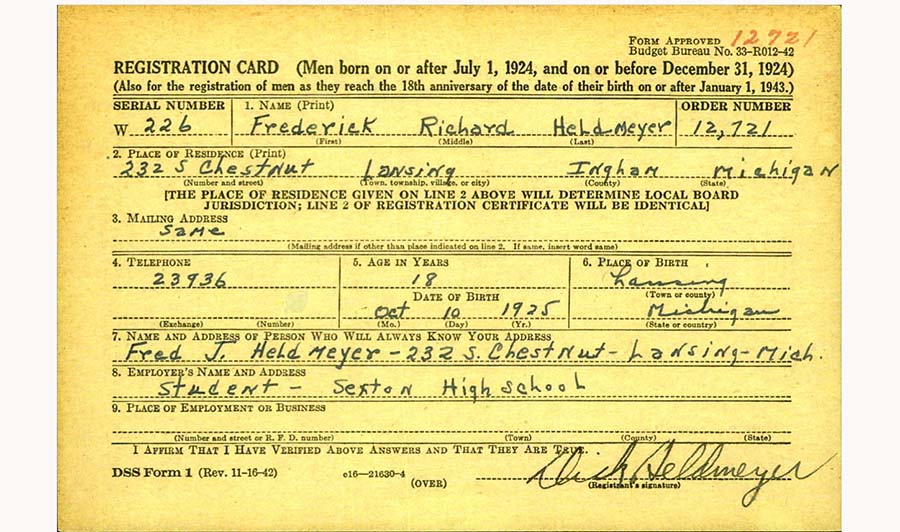 12721
FORM APPROVED
Budget Bureau No. 33-R012-42
REGISTRATION CARD (Men born on or after July 1, 1924, and on or before December 31, 1924)
(Also for the registration of men as they reach the 18th anniversary of the date of their birth on or after January 1, 1943.)
SERIAL NUMBER 1. NAME (Print) ORDER NUMBER
W 226 Frederick Richard Heldmeyer 12,721
(First) (Middle) (Last)
2. PLACE OF RESIDENCE (Print)
232 S Chestnut Lansing Ingham Michigan
(Number and street) (Town, township, village, or city) (County) (State)
[THE PLACE OF RESIDENCE GIVEN ON LINE 2 ABOVE WILL DETERMINE LOCAL BOARD
JURISDICTION; LINE 2 OF REGISTRATION CERTIFICATE WILL BE IDENTICAL]
3. MAILING ADDRESS
Same
(Mailing address if other than place indicated on line 2. If same, insert word same)
4. TELEPHONE 5. AGE IN YEARS 6. PLACE OF BIRTH
23936 18 Lansing
DATE OF BIRTH (Town or county)
Oct 10 1925 Michigan
(Exchange) (Number) (Mo.) (Day) (Yr.) (State or country)
7. NAME AND ADDRESS OF PERSON WHO WILL ALWAYS KNOW YOUR ADDRESS
Fred J. Heldmeyer - 232 S. Chestnut - Lansing - Mich.
8. EMPLOYER'S NAME AND ADDRESS
Student - Sexton High school
9. PLACE OF EMPLOYMENT OR BUSINESS
(Number and street or R. F. D. number) (Town) (County) (State)
I AFFIRM THAT I HAVE VERIFIED ABOVE ANSWERS AND THAT THEY ARE TRUE.
DSS Form 1 (Rev. 11-16-42) c16—21630-4 Dick Heldmeyer
(OVER) (Registrant's signature)